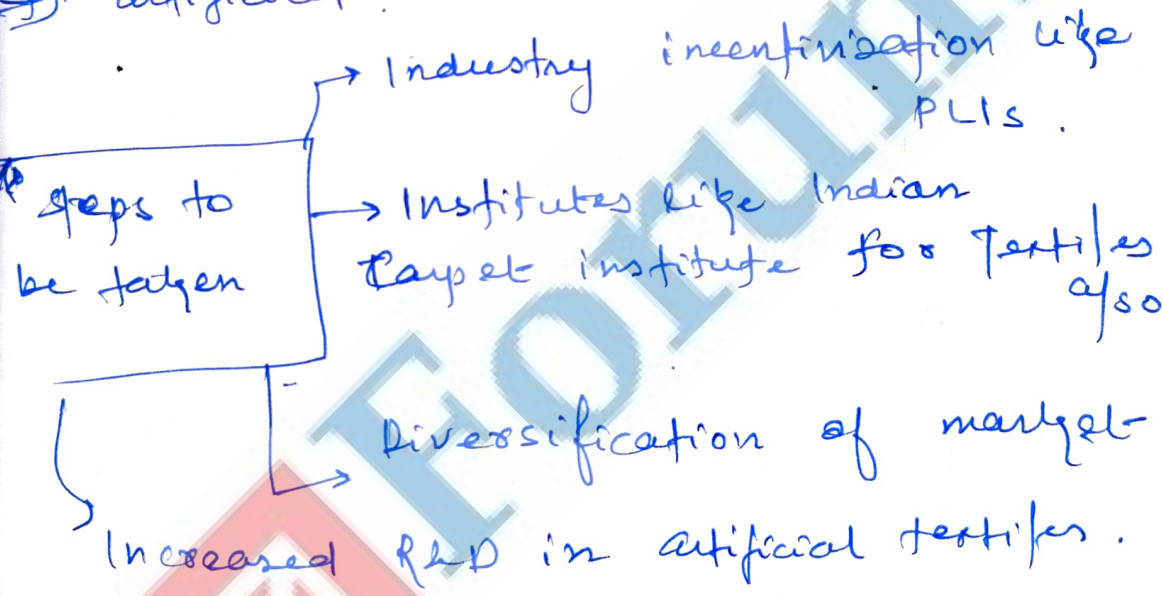 artificial
→ Industry incentivisation like
PLIs.
Steps to
be taken
→ Institutes like Indian
Carpet institute for Textiles
also
Diversification of market
Increased R&D in artificial textiles.
Forum